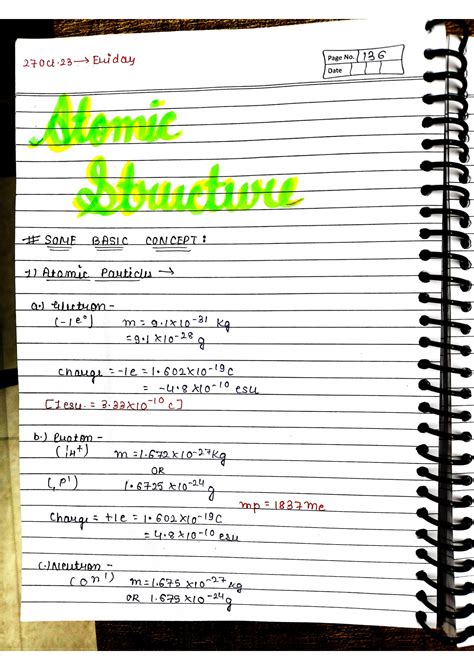 27 Oct. 23 → Friday
Page No. 136
Date
Atomic
Structure
# SOME BASIC CONCEPT :
1) Atomic Particles →
a.) Electron -
(-1e⁰) m = 9.1x10⁻³¹ Kg
= 9.1 x10⁻²⁸ g
Charge = -1e = 1.602x10⁻¹⁹C
= -4.8x10⁻¹⁰ esu
[1esu. = 3.33x10⁻¹⁰ C]
b.) Proton -
(₁H⁺) m = 1.672x10⁻²⁷Kg
OR
(₁P¹) 1.6725 x10⁻²⁴ g
mp = 1837me
Charge = +1e = 1.602x10⁻¹⁹C
= 4.8x10⁻¹⁰ esu
C.) Neutron -
(₀n¹) m = 1.675 x10⁻²⁷ Kg
OR 1.675 x10⁻²⁴ g